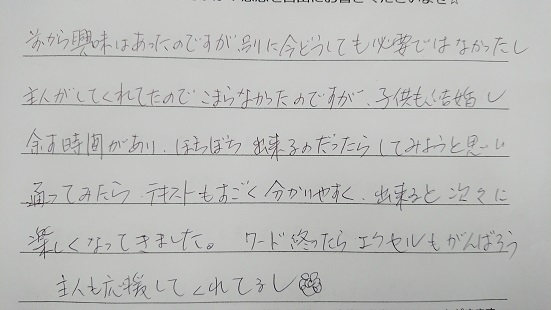 昔から興味はあったのですが、別に今どうしても必要ではなかったし
主人がしてくれてたのでこまらなかったのですが、子供も結婚し
余す時間があり、ぼちぼち出来るのだったらしてみようと思い
通ってみたら、テキストもすごく分かりやすく、出来ると次々に
楽しくなってきました。 ワード終ったらエクセルもがんばろう
主人も応援してくれてるし